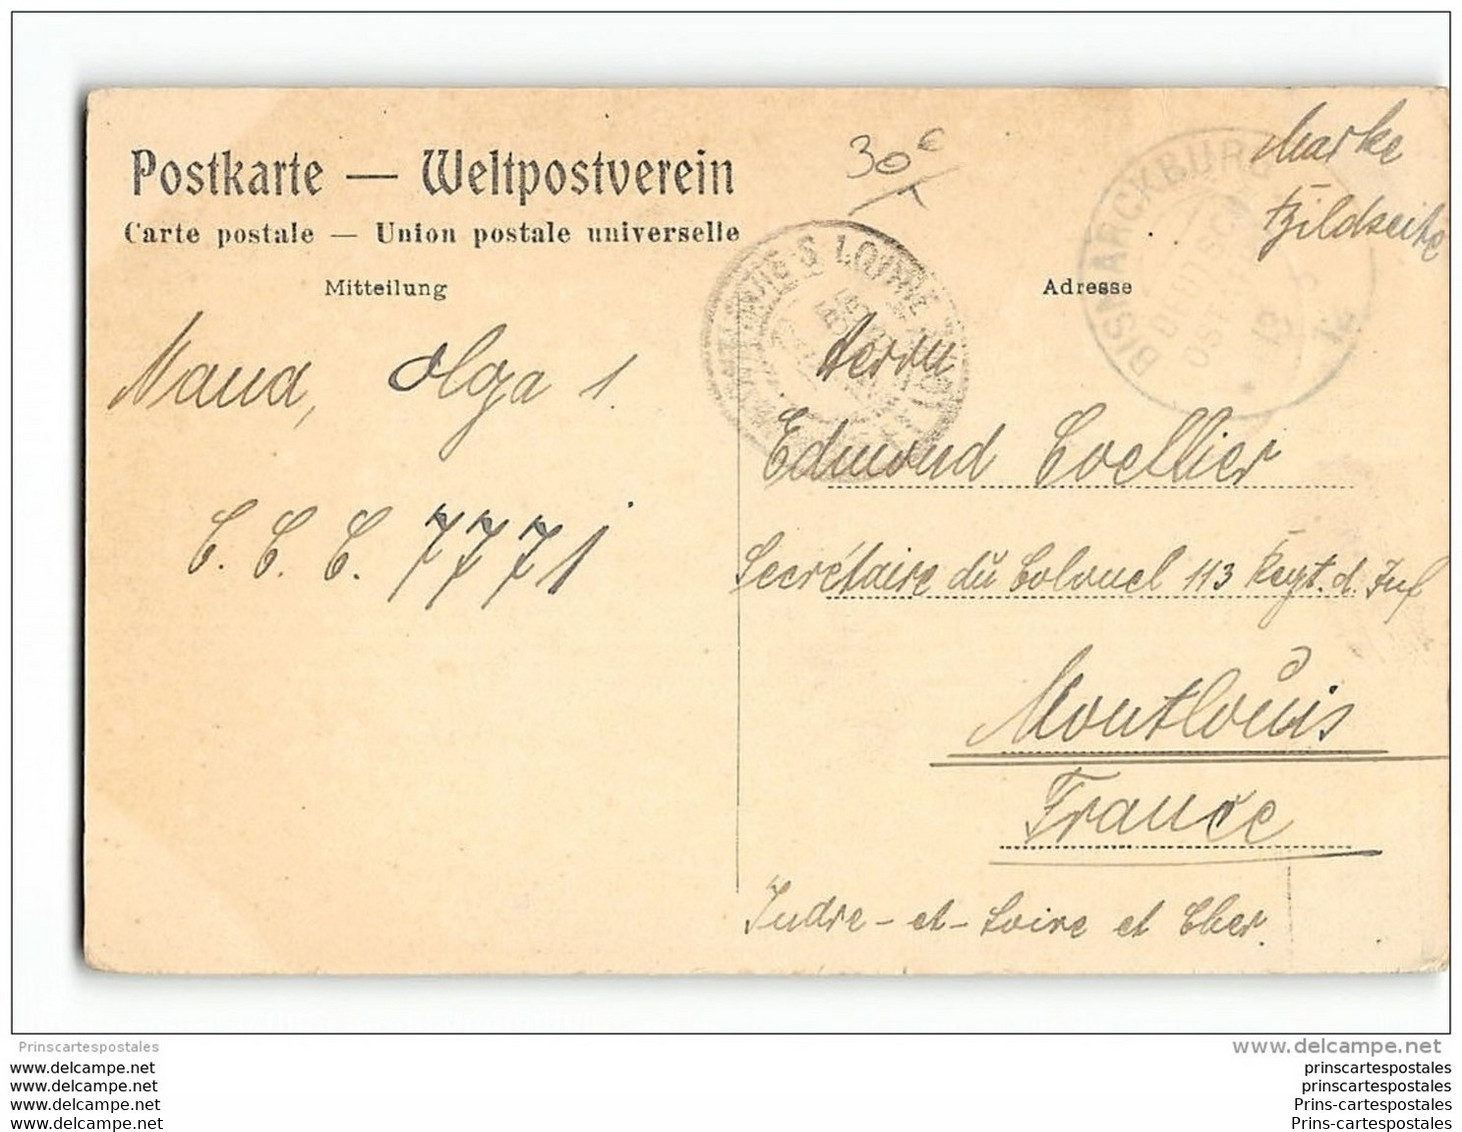 Postkarte — Weltpostverein
Carte postale — Union postale universelle
Mitteilung
Adresse
30€
Marke
Bildseite
BISMARCKBURG
MONTLOUIS S LOIRE
Herrn
Edmond Coellier
Secrétaire du Colonel 113 Regt. d. Inf
Montlouis
France
Indre-et-Loire et Cher.
Olga 1.
C. C. C. 7771
Prinscartespostales
www.delcampe.net
www.delcampe.net
prinscartespostales
www.delcampe.net
prinscartespostales
www.delcampe.net
Prins-cartespostales
www.delcampe.net
Prins-cartespostales